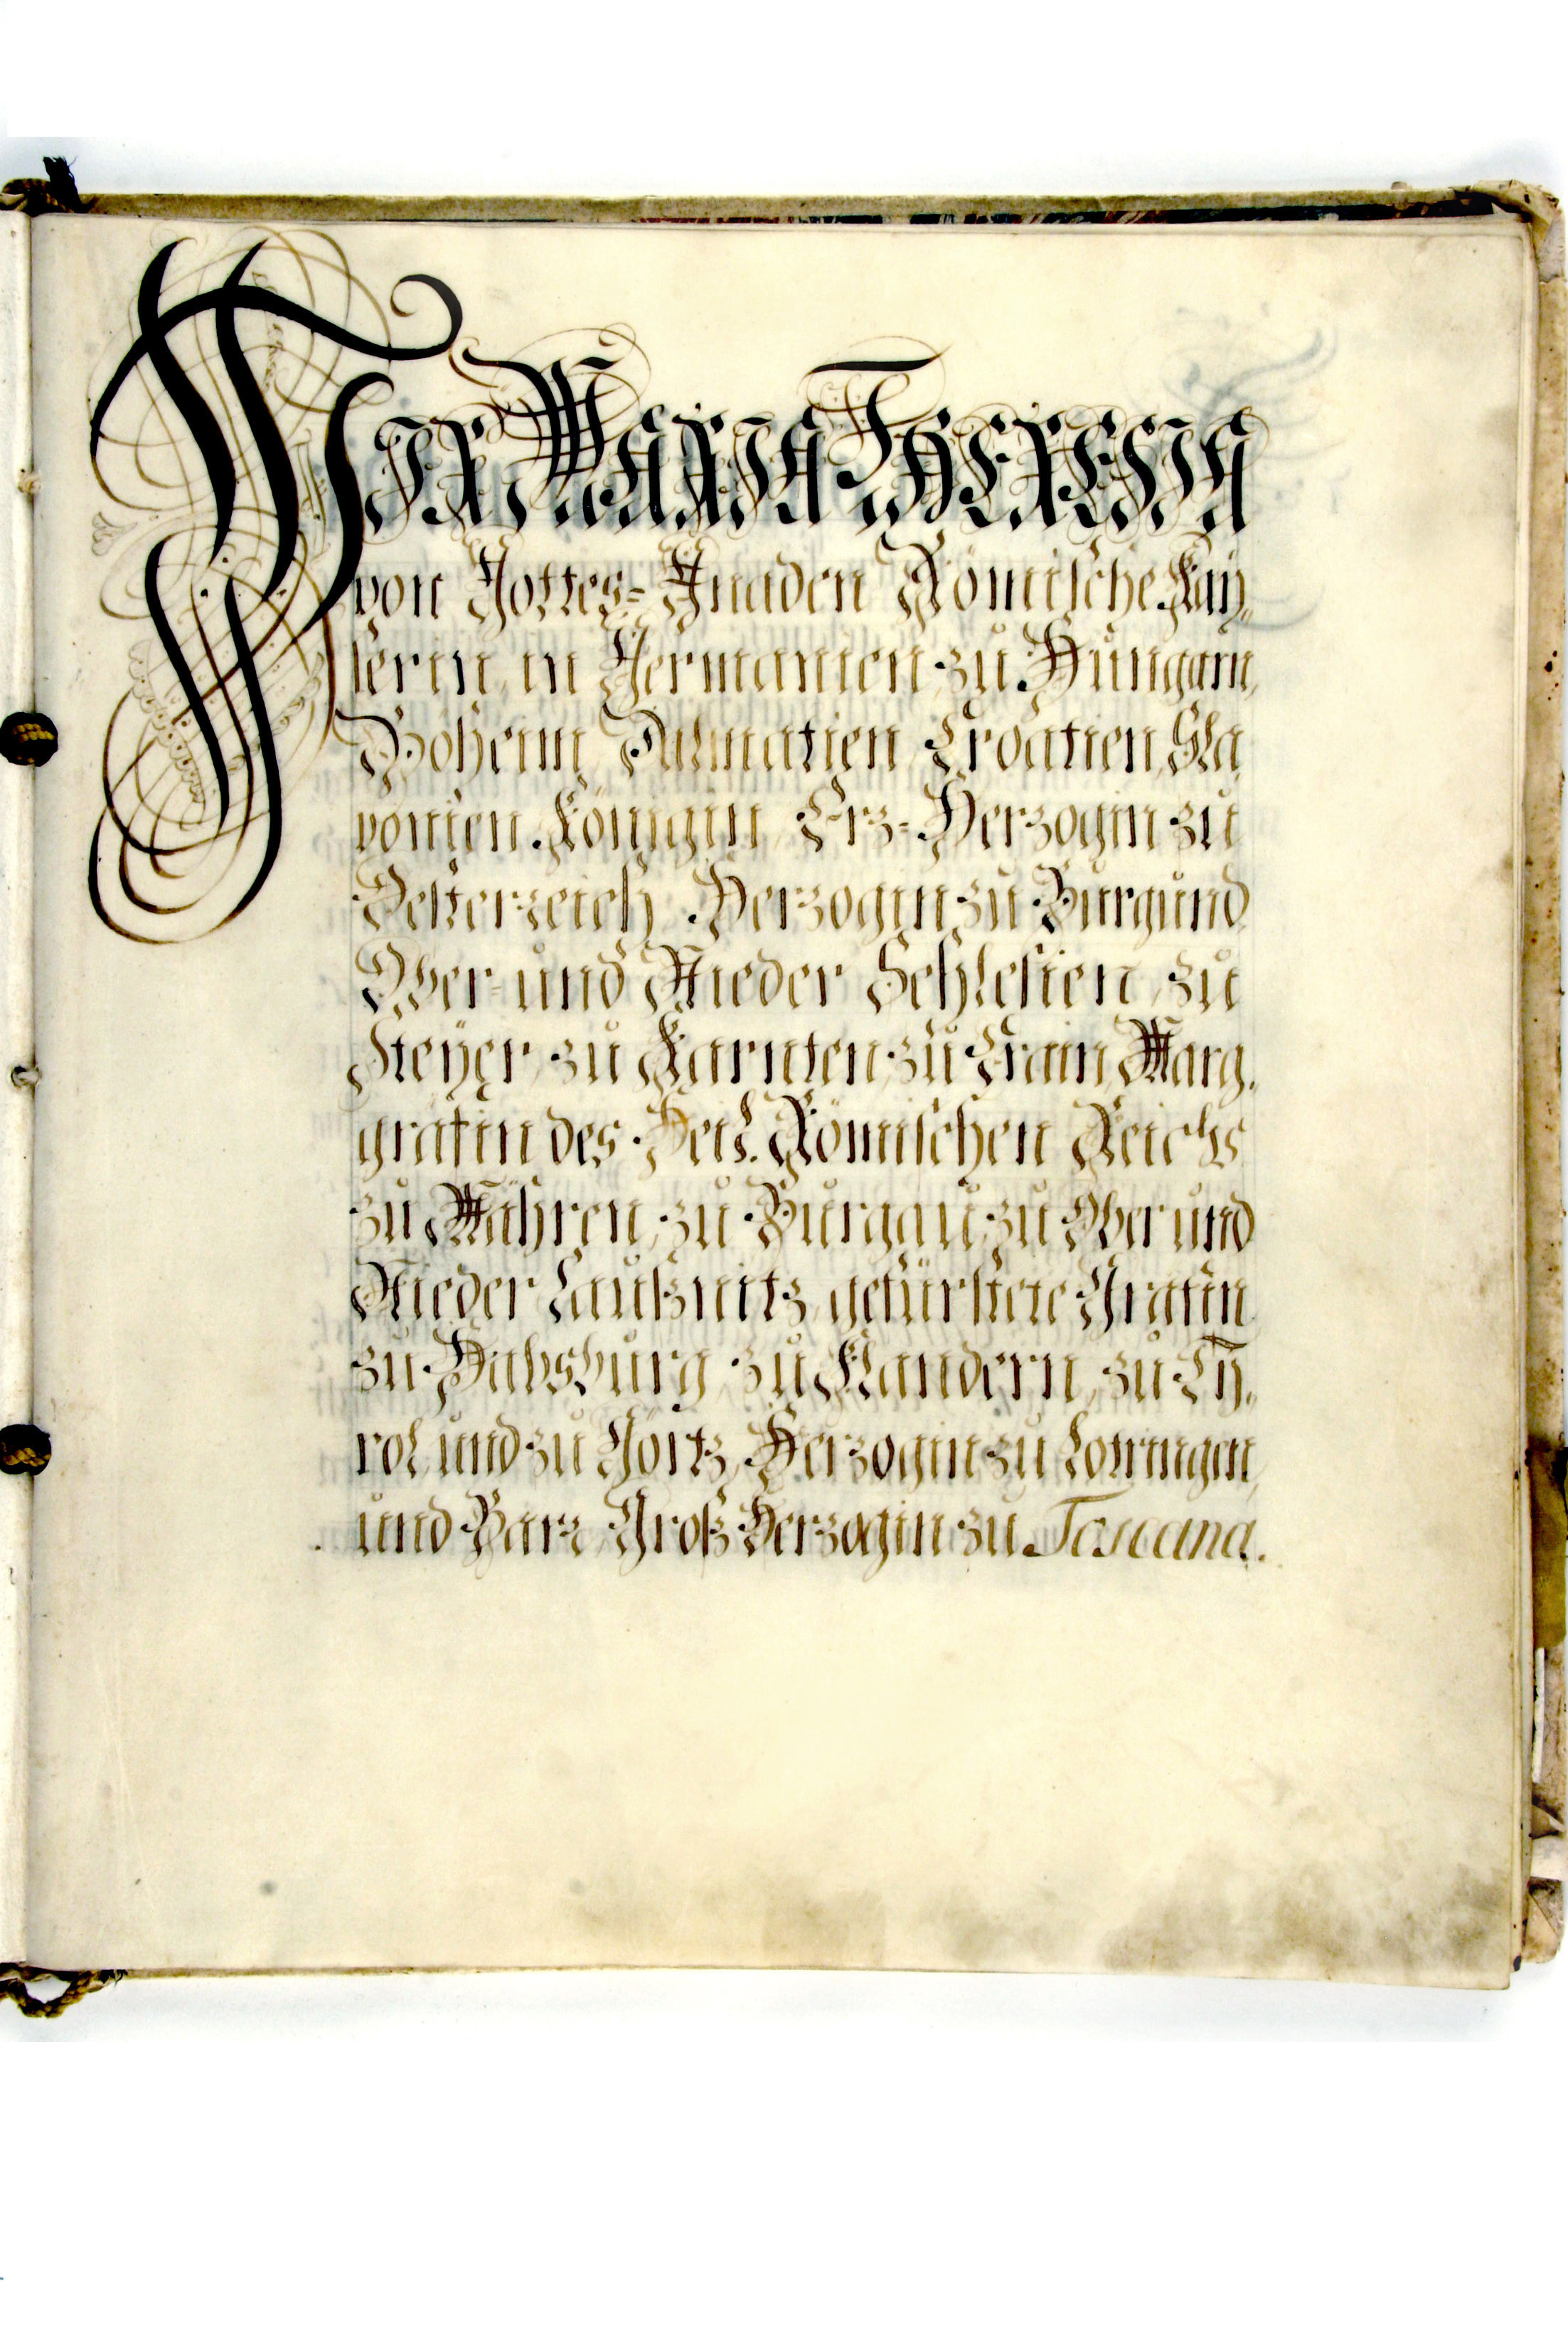 WIR MARIA THERESIA
von Gottes-Gnaden Römische Kaÿ„
serin, in Germanien, zu Hungarn,
Böheim, Dalmatien, Croatien, Sla„
vonien Königin, Erz-Herzogin zu
Oesterreich, Herzogin zu Burgund,
Ober- und Nieder Schlesien, zu
Steÿer, zu Kärnten, zu Crain, Marg„
gräfin des Heil. Römischen Reichs
zu Mähren, zu Burgau, zu Ober und
Nieder Laußnitz, gefürstete Gräfin
zu Habsburg, zu Flandern, zu Tÿ„
rol, und zu Görtz, Herzogin zu Lotringen,
und Barr, Groß Herzogin zu Toscana.